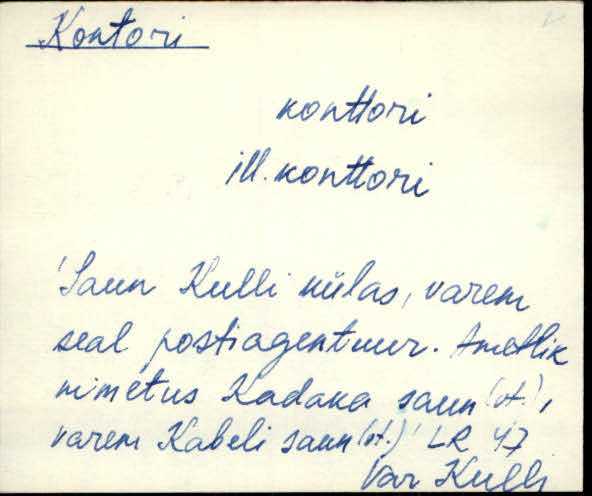 Kontori
konttori
ill. konttori
'Saun Kulli külas, varem
seal postiagentuur. Ametlik
nimetus Kadaka saun (vt.),
varem Kabeli saun (vt.)' LR 47
Var Kulli